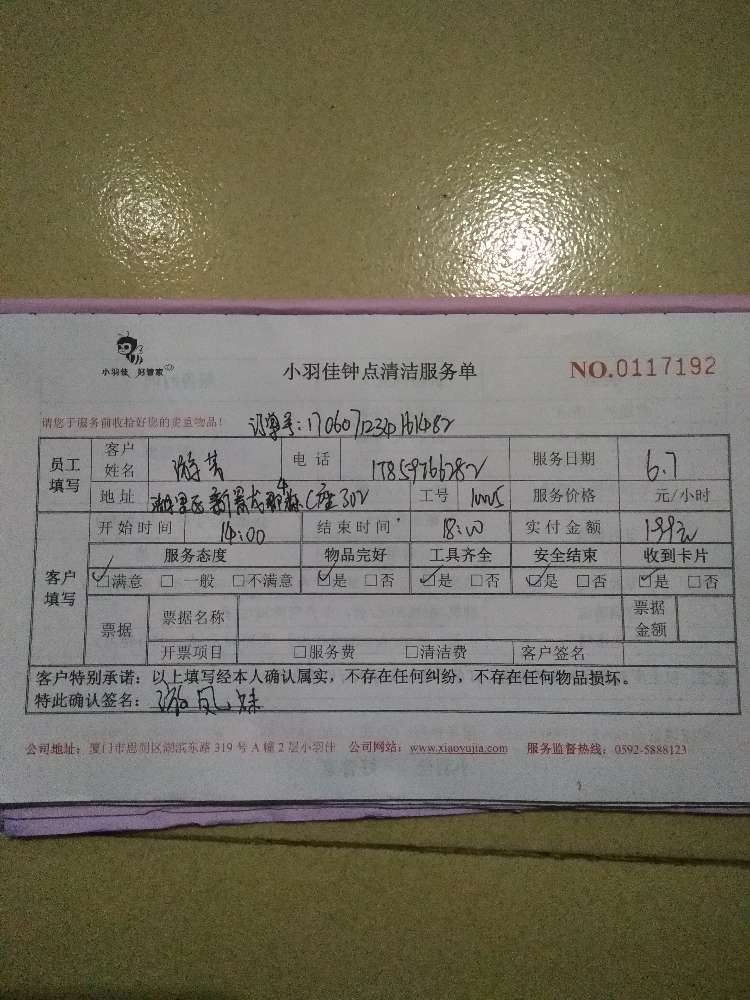 小羽佳 好管家
小羽佳钟点清洁服务单
NO.0117192
请您于服务前收拾好您的贵重物品!
订单号:
员工填写 客户姓名 电话 17859766282 服务日期 6.7
地址 C座302 工号 服务价格 元/小时
客户填写 开始时间 14:00 结束时间 18:00 实付金额 199元
服务态度 物品完好 工具齐全 安全结束 收到卡片
☑满意 □一般 □不满意 ☑是 □否 ☑是 □否 ☑是 □否 ☑是 □否
票据 票据名称 票据金额
开票项目 □服务费 □清洁费 客户签名
客户特别承诺:以上填写经本人确认属实,不存在任何纠纷,不存在任何物品损坏。
特此确认签名:游凤妹
公司地址:厦门市思明区湖滨东路319号A幢2层小羽佳 公司网站:www.xiaoyujia.com 服务监督热线:0592-5888123